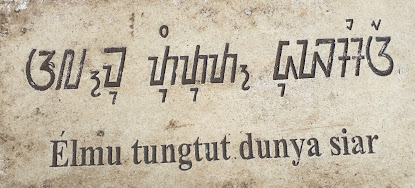 ᮆᮜ᮪ᮙᮥ ᮒᮥᮀᮒᮥᮒ᮪ ᮓᮥᮑᮞᮤᮃᮁ
Élmu tungtut dunya siar